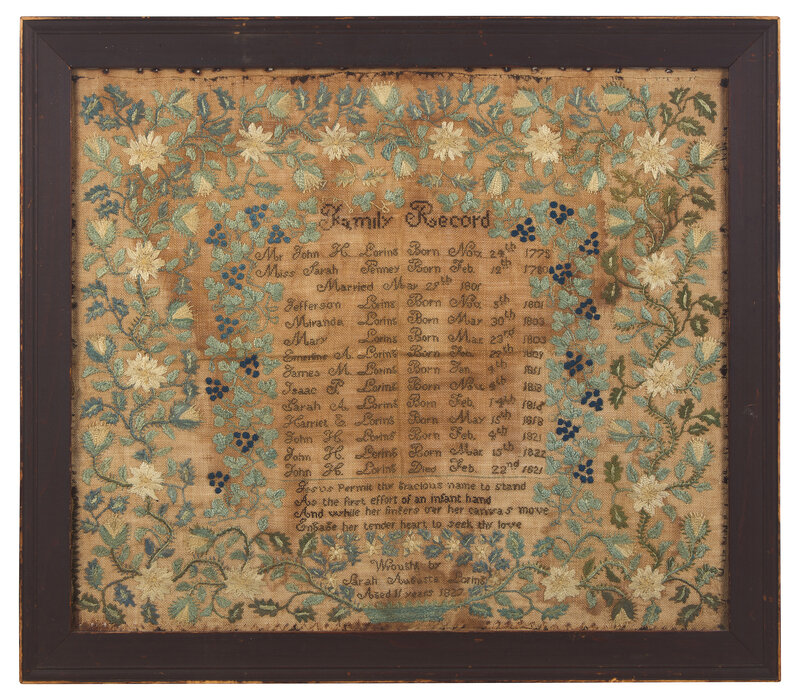 Family Record
Mr John H. Loring Born Nov. 24th 1775
Miss Sarah Penney Born Feb. 12th 1780
Married May 25th 1801
Jefferson Loring Born Nov. 5th 1801
Miranda Loring Born May 30th 1803
Mary Loring Born Mar. 23rd
Emerline A. Loring Born Feb. 27th
James M. Loring Born Jan. 4th 1811
Isaac P. Loring Born Nov. 6th
Sarah A. Loring Born Feb. 14th 1816
Harriet E. Loring Born May 15th 1818
John H. Loring Born Feb. 4th 1821
John H. Loring Born Mar. 15th 1822
John H. Loring Died Feb. 22nd 1821
Jesus permit thy gracious name to stand
As the first effort of an infant hand
And while her fingers o'er her canvas move
Engage her tender heart to seek thy love
Wrought by
Sarah Augusta Loring
Aged 11 years 1827